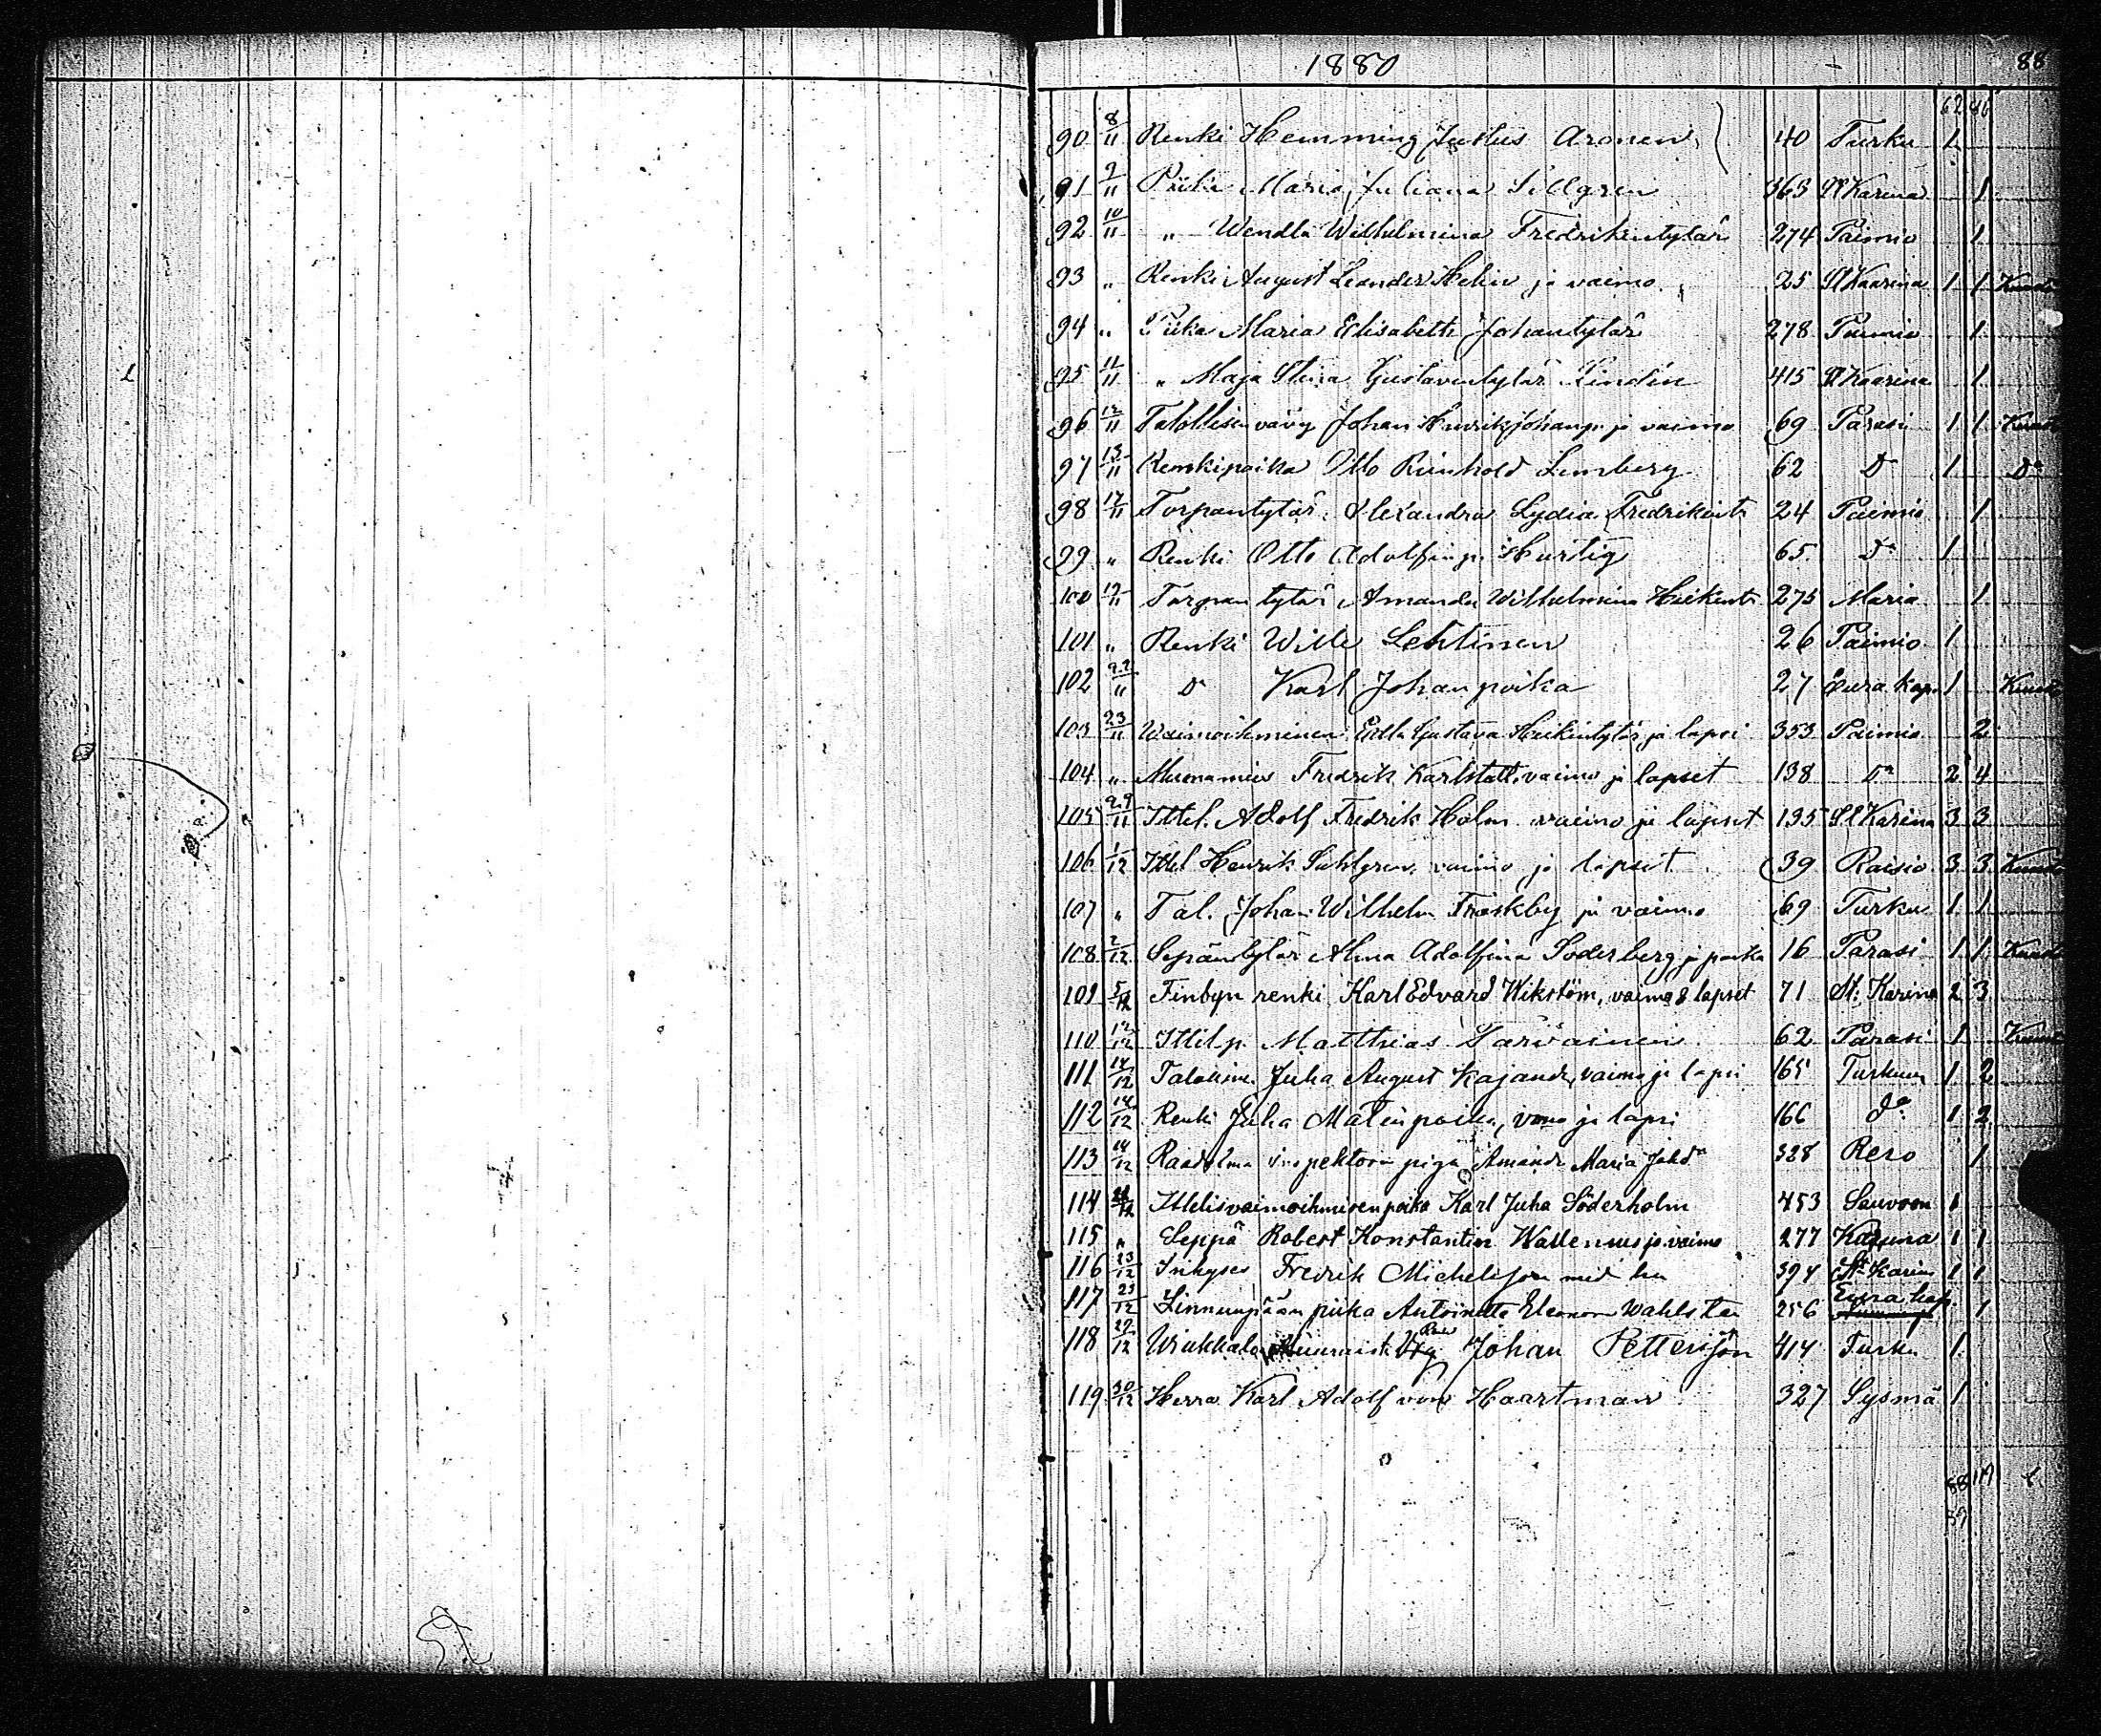 1880 88
62 46
90 8/11 Renki Hemming Justus Aronen 40 Turku 1
91 9/11 Piika Maria Juliana Sillgren 363 St Karina 1
92 10/11 " Wendla Wilhelmina Fredrikintytär 274 Paimio 1
93 " Renki August Leander Helin ja vaimo 25 St Kaarina 1 1
94 " Piika Maria Elisabeth Johantytär 278 Paimio 1
95 11/11 " Maja Stina Gustavintytär Lindin 415 St Kaarina 1
96 12/11 Talollisen vävy Johan Henrik Johanp. ja vaimo 69 Parasi 1 1
97 13/11 Renkipoika Otto Reinhold Lemberg 62 Do 1 Do
98 17/11 Torpantytär Alexandra Lydia Fredrikint 24 Paimio 1
99 " Renki Otto Adolfinp. Hurtig 65 Do 1
100 19/11 Torpantytär Amanda Wilhelmina Heikint 275 Maria 1
101 " Renki Wille Lehtinen 26 Paimio 1
102 22/11 Do Karl Johanpoika 27 Eura kap. 1
103 23/11 Waimoihminen Edla Gustava Heikintytär ja lapsi 353 Paimio 2
104 " Muonamies Fredrik Karlstatt, vaimo ja lapset 138 Do 2 4
105 29/11 Ittel. Adolf Fredrik Holm vaimo ja lapset 135 St Karina 3 3
106 1/12 Ittel Henrik Sahlgren, vaimo ja lapset 39 Raisio 3 3
107 " Tal. Johan Wilhelm Fraskby ja vaimo 69 Turku 1 1
108 2/12 Sepäntytär Alma Adolfina Söderberg ja poika 16 Parasi 1 1
109 5/12 Finbyn renki Karl Edvard Wikstöm, vaimo & lapset 71 St: Karina 2 3
110 12/12 Ittelp. Matthias Tarvainen 62 Parasi 1
111 14/12 Juha August Kajander, vaimo ja lapsi 165 Turkuun 1 2
112 14/12 Renki Juha Matinpoika, vaimo ja lapsi 166 do 1 2
113 14/12 inspektorin piga Amanda Maria Johdr 328 Reso 1
114 21/12 Ittelisvaimoihmisenpoika Karl Juha Söderholm 453 Sauvoon 1
115 " Seppä Robert Konstantin Wallenius ja vaimo 277 1 1
116 23/12 Inhyses Fredrik Michelsson med hu 394 St Karins 1 1
117 23/12 Linnunpään piika Antoinetta Eleonora Wahlsten 256 Eura kap. 1
118 29/12 Johan Pettersson 414 Turku 1
119 30/12 Herra Karl Adolf von Haartman 327 Sysmä 1
88